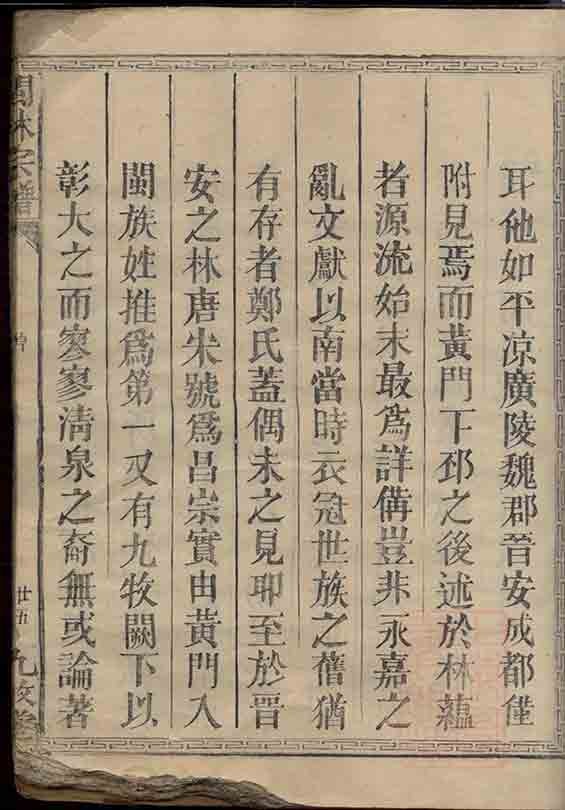 耳他如平涼廣陵魏郡晉安成都僅
附見焉而黃門下邳之後述於林蘊
者源流始末最為詳備豈非永嘉之
亂文獻以南當時衣冠世族之舊猶
有存者鄭氏蓋偶未之見耶至於晉
安之林唐宋號為昌宗實由黃門入
閩族姓推為第一又有九牧闕下以
彰大之而寥寥清泉之裔無或論著
林宗譜
廿五
九牧